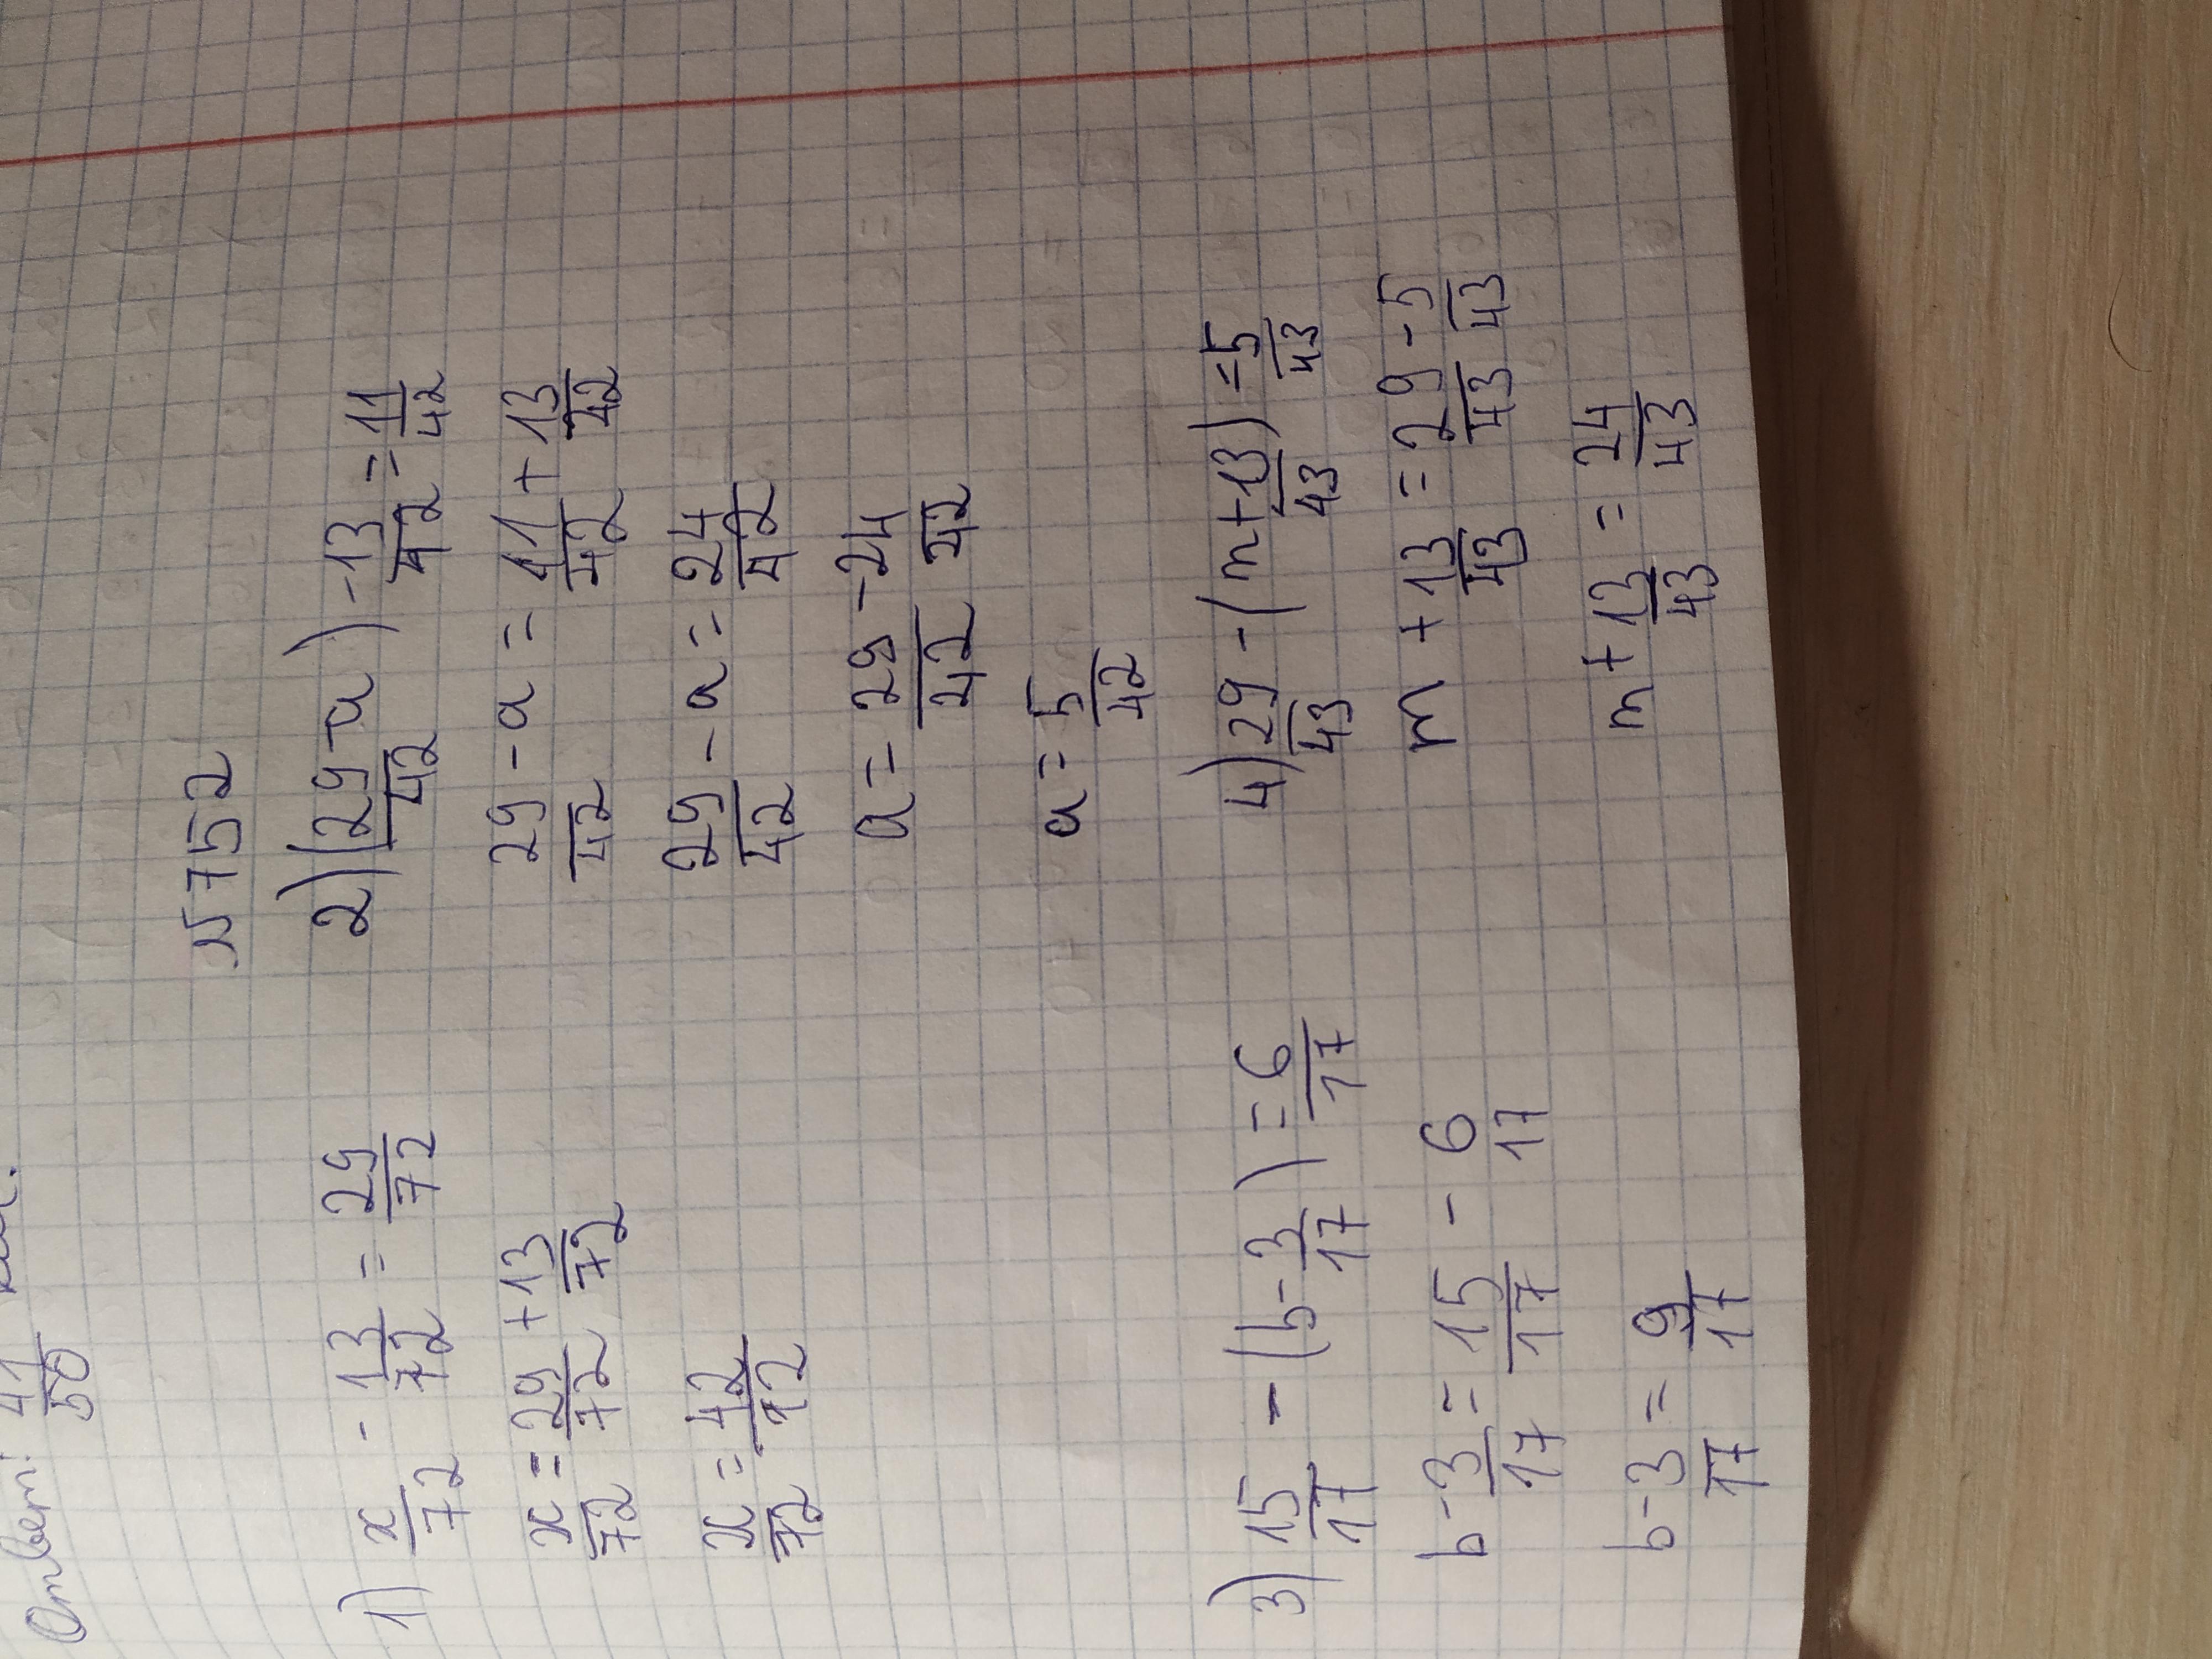 Ответ: 41/50
N 752
1) x/72 - 13/72 = 29/72
x/72 = 29/72 + 13/72
x/72 = 42/72
2) (29/42 - a) - 13/42 = 11/42
29/42 - a = 11/42 + 13/42
29/42 - a = 24/42
a = 29/42 - 24/42
a = 5/42
3) 15/17 - (b - 3/17) = 6/17
b - 3/17 = 15/17 - 6/17
b - 3/17 = 9/17
4) 29/43 - (m + 13/43) = 5/43
m + 13/43 = 29/43 - 5/43
m + 13/43 = 24/43